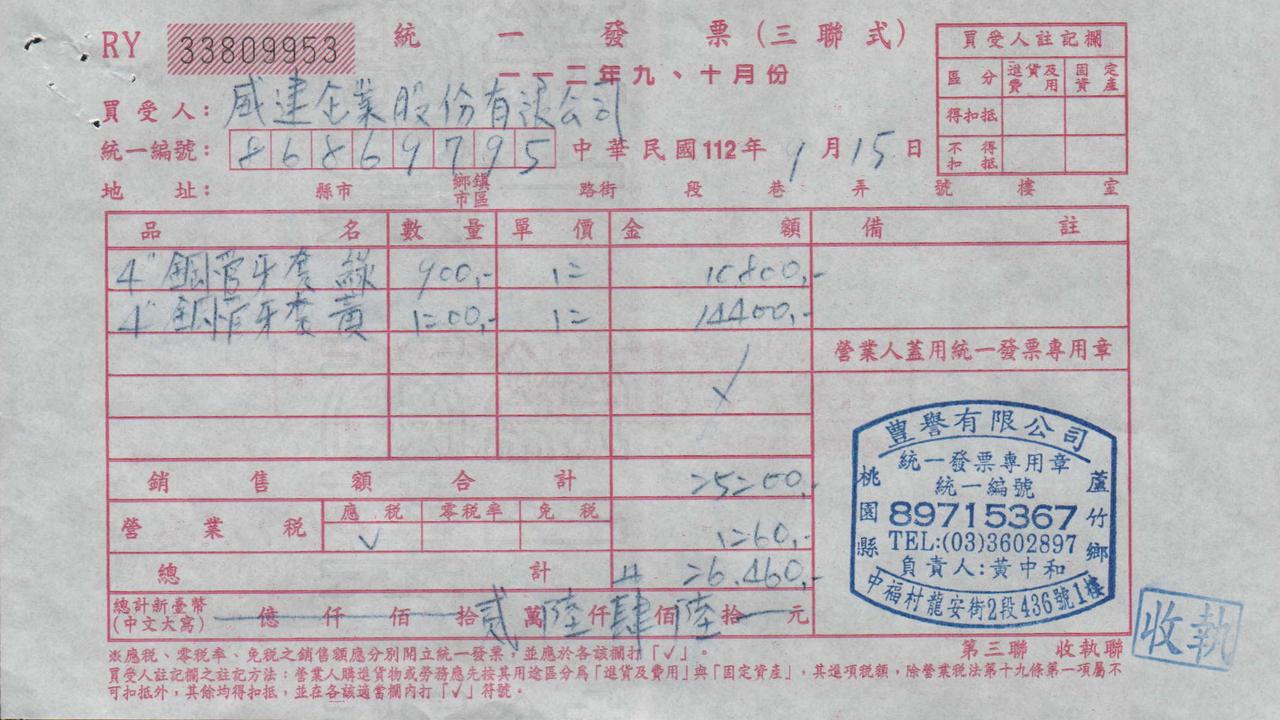 RY 33809953 統一發票(三聯式)
一一二年九、十月份
買受人註記欄
區分 進貨及費用 固定資產
得扣抵
不得扣抵
買受人: 威達企業股份有限公司
統一編號: 86869795 中華民國112年9月15日
地址: 縣市 鄉鎮市區 路街 段 巷 弄 號 樓 室
品名 數量 單價 金額 備註
4" 鋼管牙套 綠 900,- 12 10800,-
4" 鋼管牙套 黃 1200,- 12 14400,-
營業人蓋用統一發票專用章
✓
銷售額合計 25200,-
營業稅 應稅 零稅率 免稅 1260,-
✓
總計 26,460,-
總計新臺幣(中文大寫) 億 仟 佰 拾 貳 萬 陸 仟 肆 佰 陸 拾 元
豐譽有限公司
統一發票專用章
統一編號
89715367
TEL:(03)3602897
負責人:黃中和
桃園縣 蘆竹鄉
中福村龍安街2段436號1樓
第三聯 收執聯
收執
※應稅、零稅率、免稅之銷售額應分別開立統一發票,並應於各該欄打「✓」。
買受人註記欄之註記方法:營業人購進貨物或勞務應先按其用途區分為「進貨及費用」與「固定資產」,其進項稅額,除營業稅法第十九條第一項屬不
可扣抵外,其餘均得扣抵,並在各該適當欄內打「✓」符號。